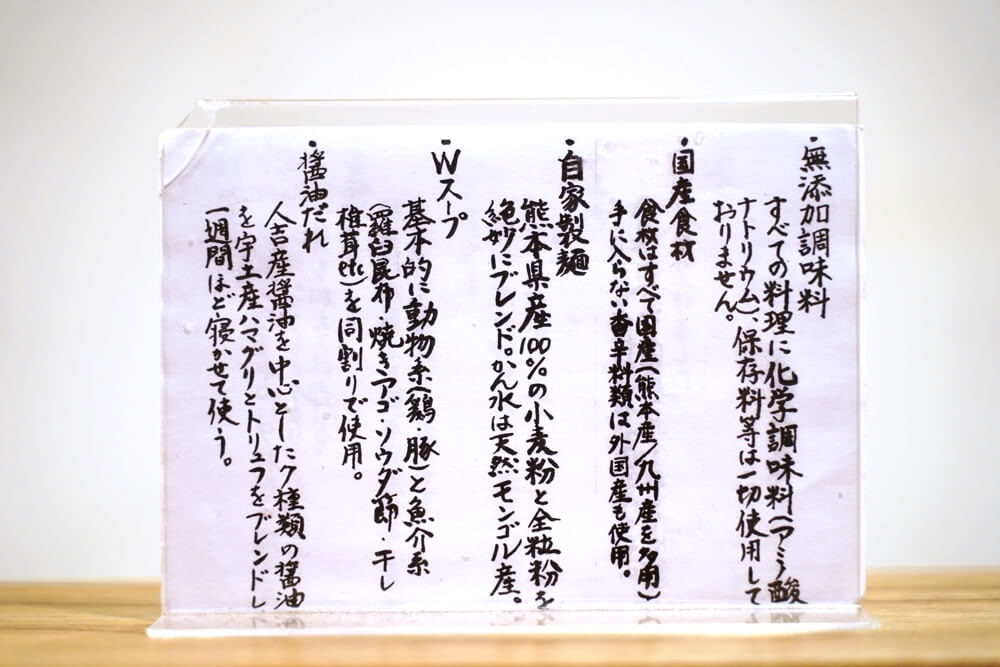 ・無添加調味料
すべての料理に化学調味料(アミノ酸
ナトリウム、保存料等は一切使用して
おりません。
・国産食材
食材はすべて国産(熊本産/九州産を多用)
手に入らない香辛料類は外国産も使用。
・自家製麺
熊本県産100%の小麦粉と全粒粉を
絶妙にブレンド。かん水は天然モンゴル産。
・Wスープ
基本的に動物系(鶏・豚)と魚介系
(羅臼昆布・焼きアゴ・ソウダ節・干し
椎茸etc)を同割りで使用。
・醤油だれ
人吉産醤油を中心とした7種類の醤油
を宇土産ハマグリとトリュフをブレンドし
一週間ほど寝かせて使う。